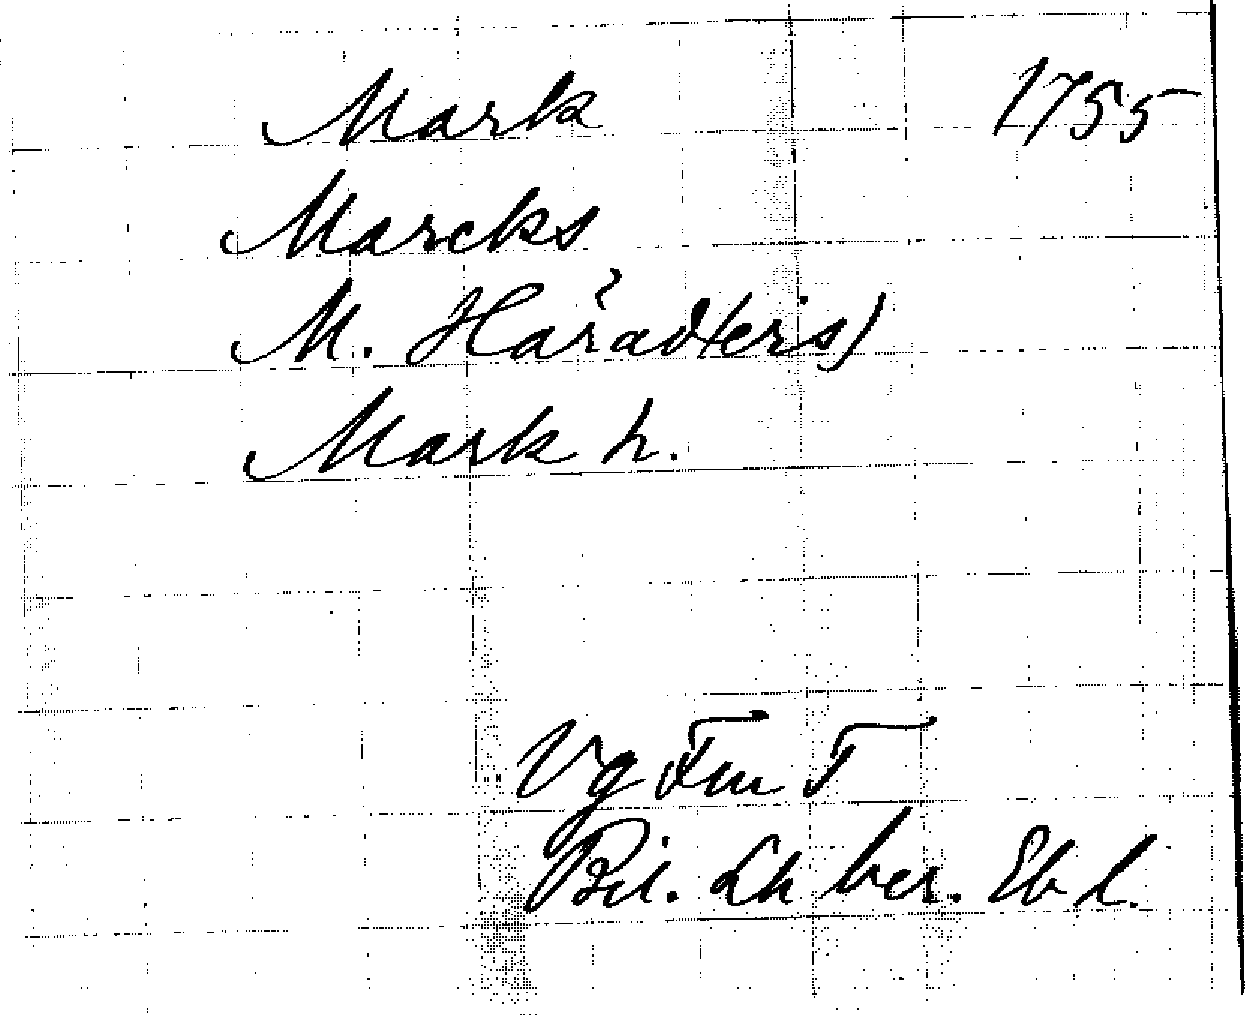 Mark 1755
Marcks
M. Härad(ers)
Mark h.
Vg Fm F
Bil. Lh ber. Eb l.